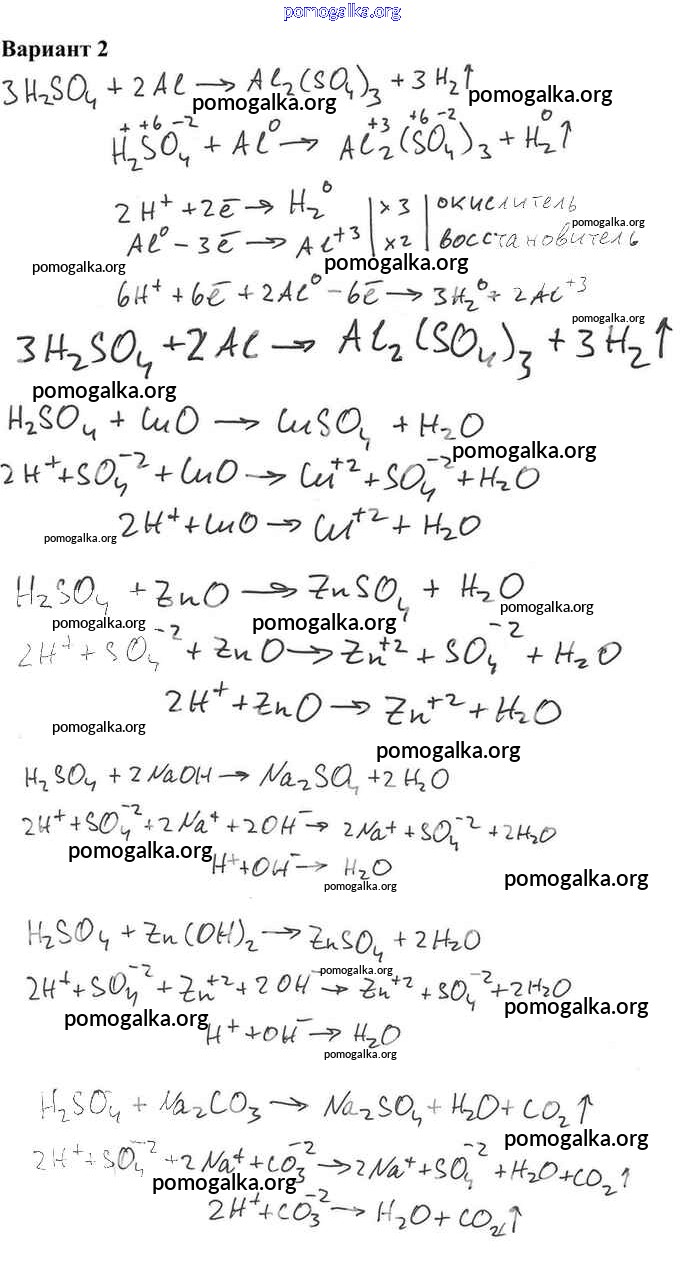 pomogalka.org
Вариант 2
3H₂SO₄ + 2Al → Al₂(SO₄)₃ + 3H₂↑
pomogalka.org pomogalka.org
+ +6 -2 0 +3 +6 -2 0
H₂SO₄ + Al⁰ → Al₂(SO₄)₃ + H₂↑
2H⁺ + 2ē → H₂⁰ | x3 | окислитель
pomogalka.org
Al⁰ - 3ē → Al⁺³ | x2 | восстановитель
pomogalka.org pomogalka.org
6H⁺ + 6ē + 2Al⁰ - 6ē → 3H₂⁰ + 2Al⁺³
pomogalka.org
3H₂SO₄ + 2Al → Al₂(SO₄)₃ + 3H₂↑
pomogalka.org
H₂SO₄ + CuO → CuSO₄ + H₂O
pomogalka.org
2H⁺ + SO₄⁻² + CuO → Cu⁺² + SO₄⁻² + H₂O
2H⁺ + CuO → Cu⁺² + H₂O
pomogalka.org
H₂SO₄ + ZnO → ZnSO₄ + H₂O
pomogalka.org
pomogalka.org pomogalka.org
2H⁺ + SO₄⁻² + ZnO → Zn⁺² + SO₄⁻² + H₂O
2H⁺ + ZnO → Zn⁺² + H₂O
pomogalka.org
pomogalka.org
H₂SO₄ + 2NaOH → Na₂SO₄ + 2H₂O
2H⁺ + SO₄⁻² + 2Na⁺ + 2OH⁻ → 2Na⁺ + SO₄⁻² + 2H₂O
pomogalka.org
H⁺ + OH⁻ → H₂O
pomogalka.org pomogalka.org
H₂SO₄ + Zn(OH)₂ → ZnSO₄ + 2H₂O
pomogalka.org
2H⁺ + SO₄⁻² + Zn⁺² + 2OH⁻ → Zn⁺² + SO₄⁻² + 2H₂O
pomogalka.org pomogalka.org
H⁺ + OH⁻ → H₂O
pomogalka.org
H₂SO₄ + Na₂CO₃ → Na₂SO₄ + H₂O + CO₂↑
pomogalka.org
2H⁺ + SO₄⁻² + 2Na⁺ + CO₃⁻² → 2Na⁺ + SO₄⁻² + H₂O + CO₂↑
pomogalka.org
2H⁺ + CO₃⁻² → H₂O + CO₂↑